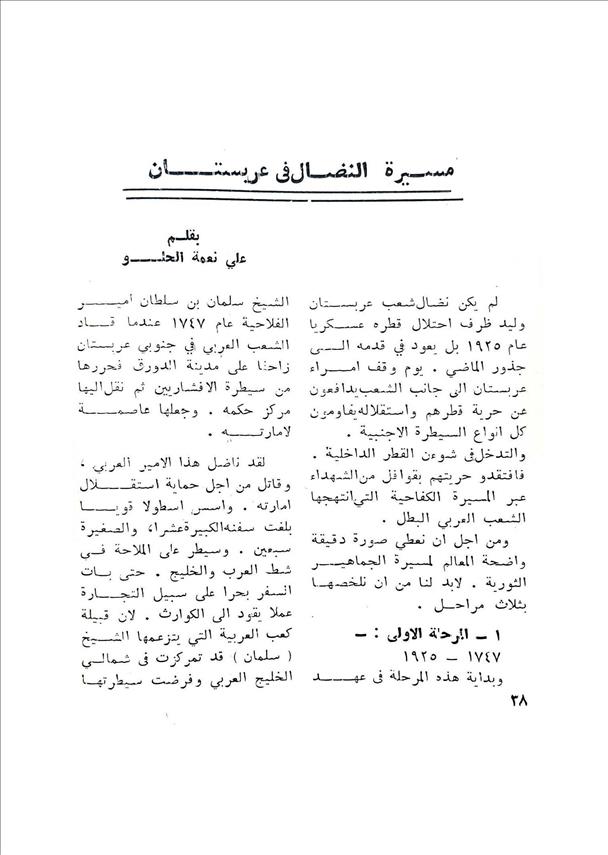 مسيرة النضال في عربستان
بقلم
علي نعمة الحلو
لم يكن نضال شعب عربستان
وليد ظرف احتلال قطره عسكريا
عام ١٩٢٥ بل يعود في قدمه الى
جذور الماضي . يوم وقف امراء
عربستان الى جانب الشعب يدافعون
عن حرية قطرهم واستقلاله يقاومون
كل انواع السيطرة الاجنبية .
والتدخل في شوءن القطر الداخلية .
فافتقدو حريتهم بقوافل من الشهداء
عبر المسيرة الكفاحية التي انتهجها
الشعب العربي البطل .
ومن اجل ان نعطي صورة دقيقة
واضحة المعالم لمسيرة الجماهير
الثورية . لابد لنا من ان نلخصها
بثلاث مراحل .
١ ـ المرحلة الاولى : ـ
١٧٤٧ ـ ١٩٢٥
وبداية هذه المرحلة في عهد
الشيخ سلمان بن سلطان أمير
الفلاحية عام ١٧٤٧ عندما قاد
الشعب العربي في جنوبي عربستان
زاحفا على مدينة الدورق فحررها
من سيطرة الافشاريين ثم نقل اليها
مركز حكمه . وجعلها عاصمة
لامارته .
لقد ناضل هذا الامير العربي ،
وقاتل من اجل حماية استقلال
امارته . واسس اسطولا قويا
بلغت سفنه الكبيرة عشرا، والصغيرة
سبعين . وسيطر على الملاحة في
شط العرب والخليج . حتى بات
السفر بحرا على سبيل التجارة
عملا يقود الى الكوارث . لان قبيلة
كعب العربية التي يتزعمها الشيخ
( سلمان ) قد تمركزت في شمالي
الخليج العربي وفرضت سيطرتها
٣٨